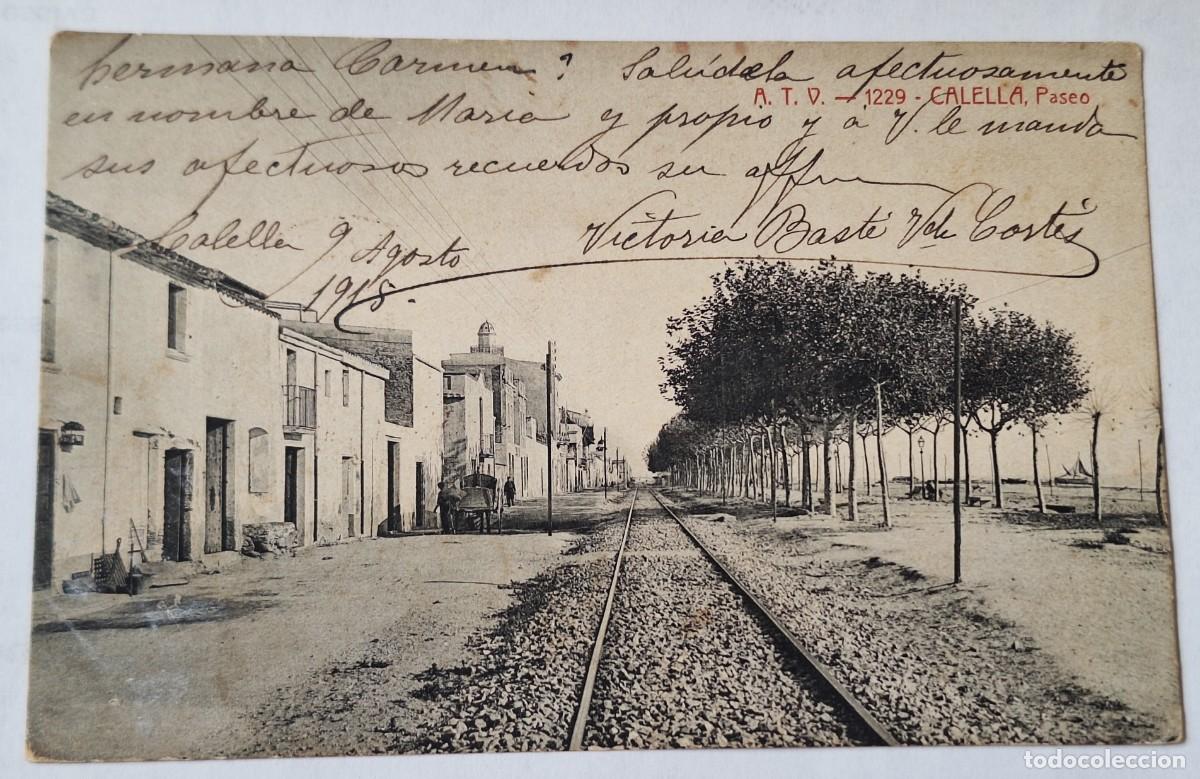 hermana Carmen? Salúdela afectuosamente
A. T. V. — 1229 - CALELLA, Paseo
en nombre de Maria y propio y a V. le manda
sus afectuosos recuerdos su affma
Victoria Basté Vda Cortés
Calella 9 Agosto
1915.
todocoleccion